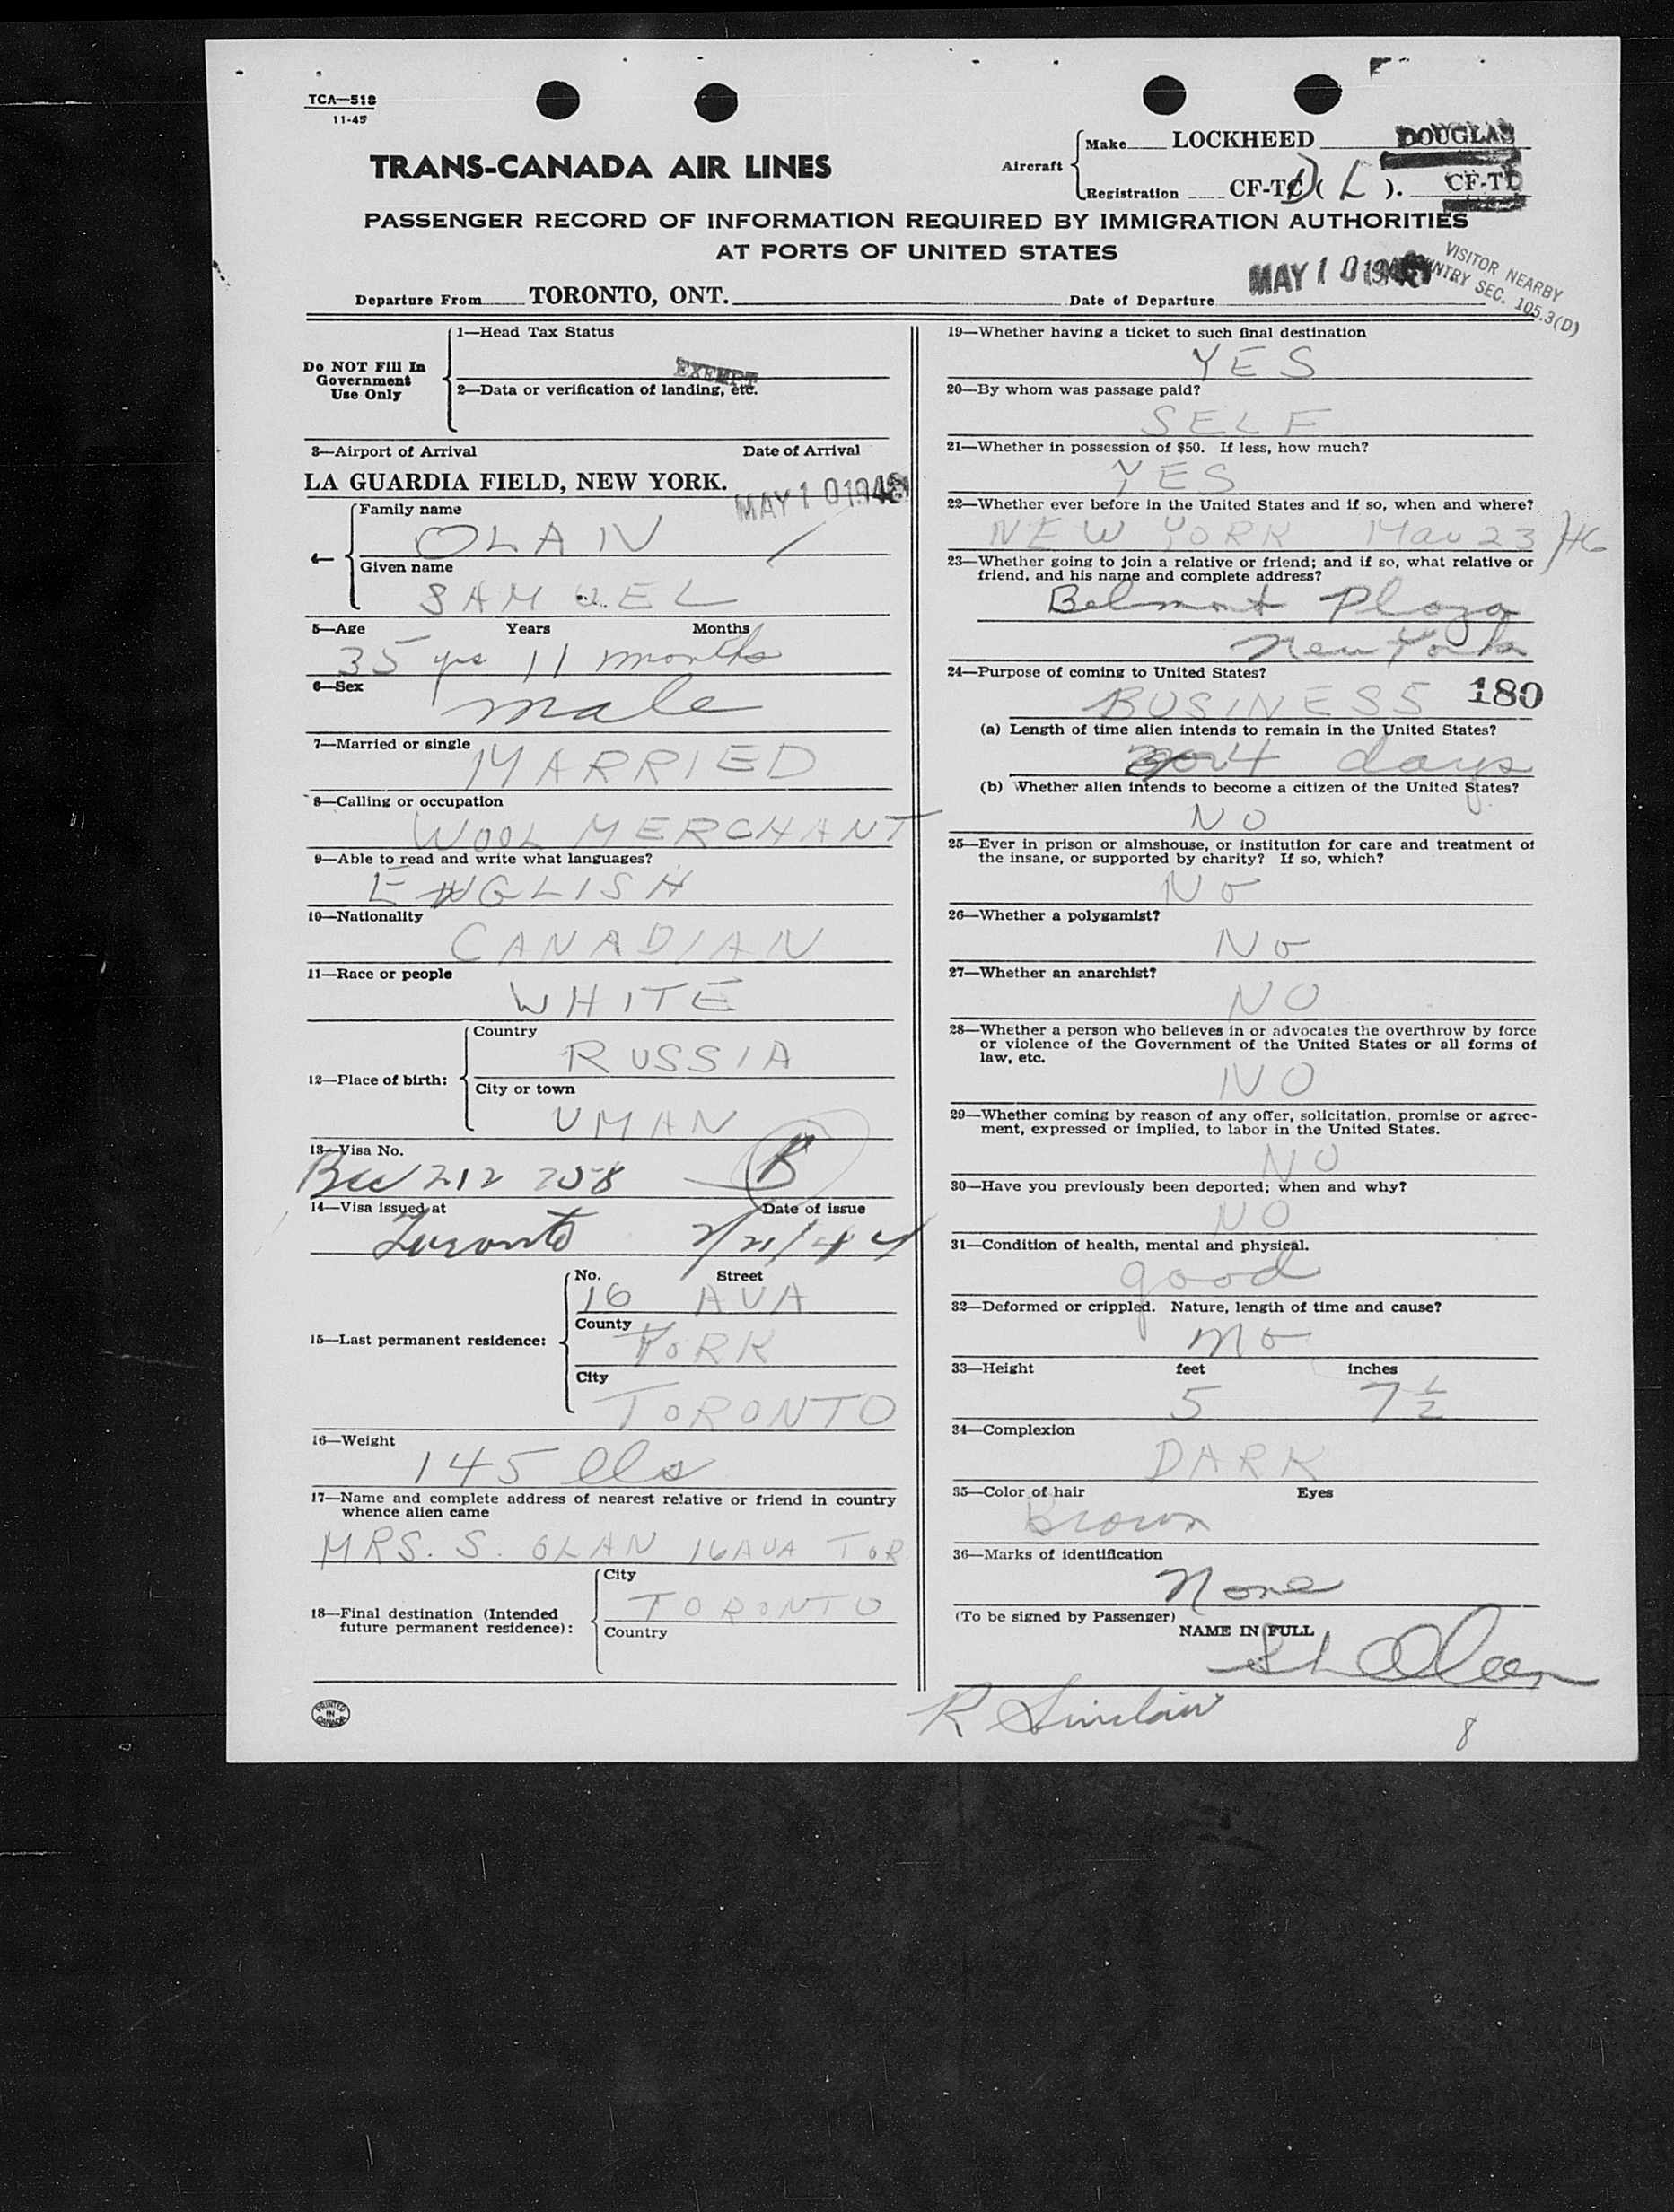 TCA—518
11-45
TRANS-CANADA AIR LINES
Aircraft
Make LOCKHEED DOUGLAS
Registration CF-TC ( L ). CF-TD
PASSENGER RECORD OF INFORMATION REQUIRED BY IMMIGRATION AUTHORITIES
AT PORTS OF UNITED STATES
VISITOR NEARBY
COUNTRY SEC. 105.3(D)
Departure From TORONTO, ONT. Date of Departure MAY 10 1946
Do NOT Fill In
Government
Use Only
1—Head Tax Status
EXEMPT
2—Data or verification of landing, etc.
3—Airport of Arrival Date of Arrival
LA GUARDIA FIELD, NEW YORK. MAY 10 1946
4—
Family name
OLAN
Given name
SAMUEL
5—Age Years Months
35 yrs 11 months
6—Sex
male
7—Married or single
MARRIED
8—Calling or occupation
WOOL MERCHANT
9—Able to read and write what languages?
ENGLISH
10—Nationality
CANADIAN
11—Race or people
WHITE
12—Place of birth:
Country
RUSSIA
City or town
UMAN
13—Visa No.
212 258 B
14—Visa issued at Date of issue
Toronto 2/21/44
15—Last permanent residence:
No. Street
16 AVA
County
YORK
City
TORONTO
16—Weight
145 lbs
17—Name and complete address of nearest relative or friend in country
whence alien came
MRS. S. OLAN 16 AVA TOR
18—Final destination (Intended
future permanent residence):
City
TORONTO
Country
PRINTED
IN
CANADA
19—Whether having a ticket to such final destination
YES
20—By whom was passage paid?
SELF
21—Whether in possession of $50. If less, how much?
YES
22—Whether ever before in the United States and if so, when and where?
NEW YORK Mar 23/46
23—Whether going to join a relative or friend; and if so, what relative or
friend, and his name and complete address?
Belmont Plaza
New York
24—Purpose of coming to United States?
BUSINESS 180
(a) Length of time alien intends to remain in the United States?
4 days
(b) Whether alien intends to become a citizen of the United States?
NO
25—Ever in prison or almshouse, or institution for care and treatment of
the insane, or supported by charity? If so, which?
No
26—Whether a polygamist?
No
27—Whether an anarchist?
NO
28—Whether a person who believes in or advocates the overthrow by force
or violence of the Government of the United States or all forms of
law, etc.
NO
29—Whether coming by reason of any offer, solicitation, promise or agree-
ment, expressed or implied, to labor in the United States.
NO
30—Have you previously been deported; when and why?
NO
31—Condition of health, mental and physical.
good
32—Deformed or crippled. Nature, length of time and cause?
no
33—Height feet inches
5 7 1/2
34—Complexion
DARK
35—Color of hair Eyes
brown
36—Marks of identification
None
(To be signed by Passenger)
NAME IN FULL
Olan
R Sinclair
8